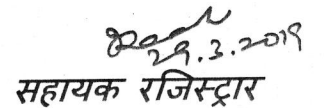 29.3.2019
सहायक रजिस्ट्रार